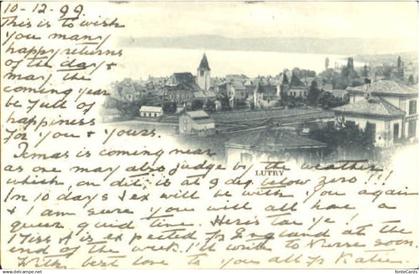 10-12-99
This is to wish
you many
happy returns
of the day &
may the
coming year
be full of
happiness
for you &
yours.
Xmas is coming near
as one may also judge by the weather
which, on dit, is at 9 deg. below zero!!!
LUTRY
In 10 days I will be with you again
& I am sure you will all have a
good time.
Miss is expected England at the
end of the week. I'll write to soon.
With best love to you all yrs Katie.